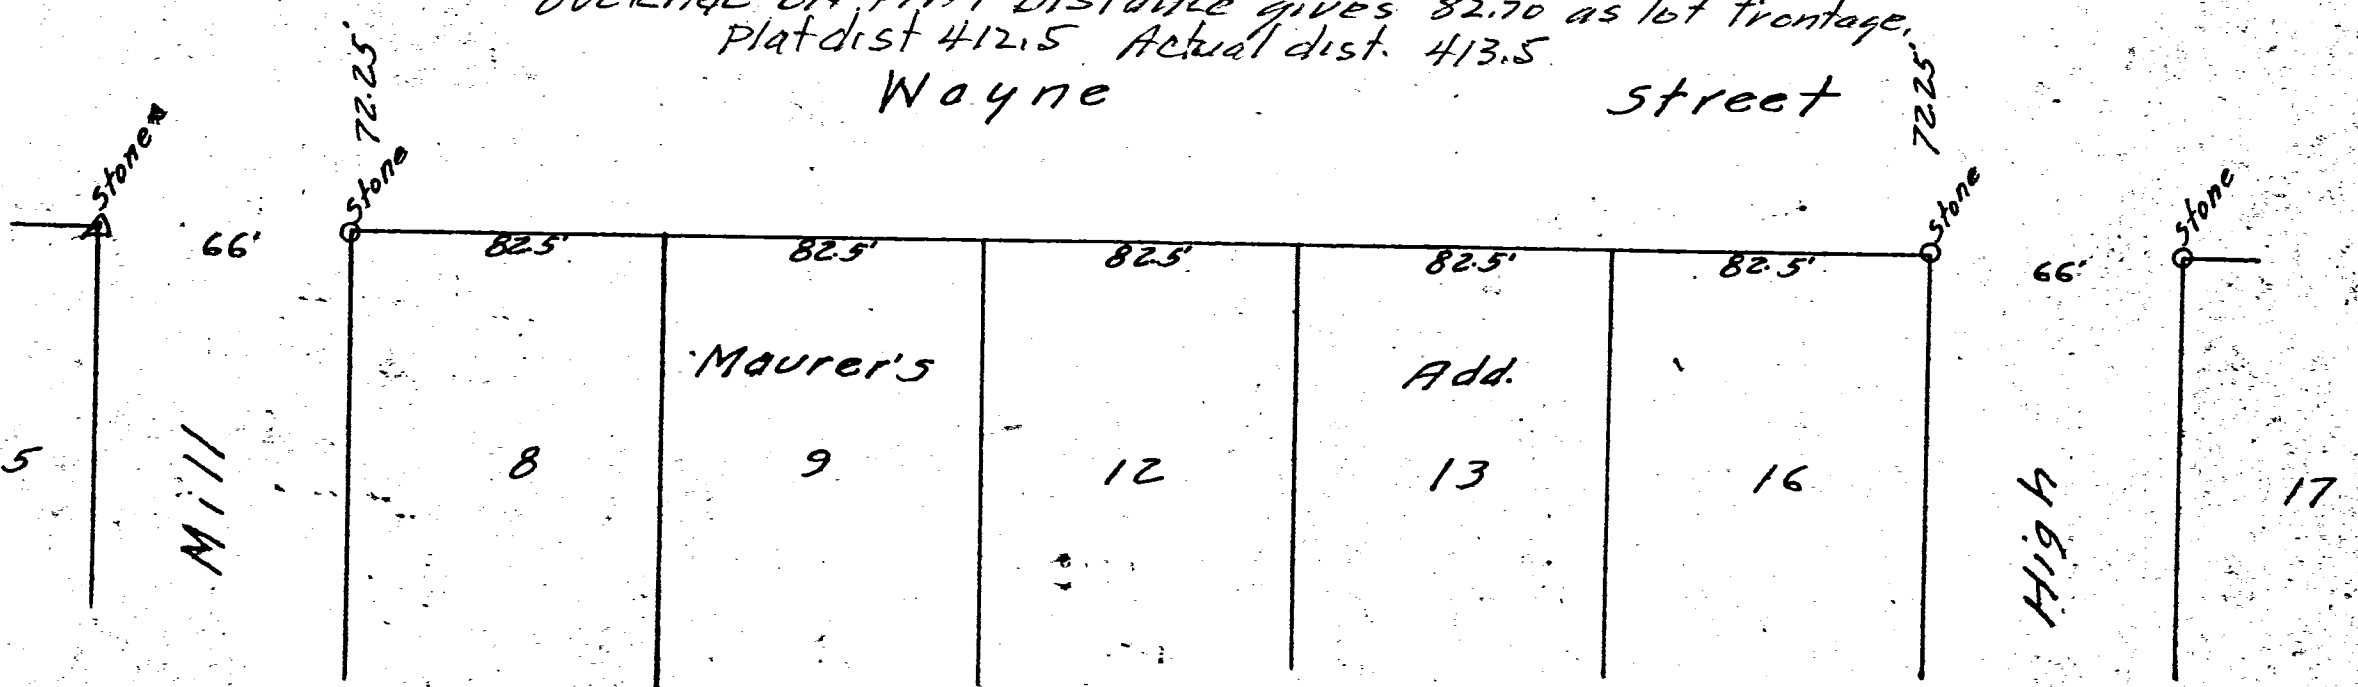 on Distance gives 82.70 as lot frontage.
Plat dist 412.5 Actual dist. 413.5
Wayne Street
72.25'
72.25'
Stone
Stone
Stone
Stone
66'
82.5'
82.5'
82.5'
82.5'
82.5'
66'
Maurer's Add.
5
Mill
8
9
12
13
16
High
17